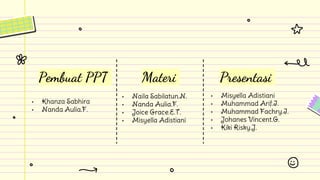 Pembuat PPT
• Khanza Sabhira
• Nanda Aulia.F.
Materi
• Naila Sabilatun.N.
• Nanda Aulia.F.
• Joice Grace.E.T.
• Misyella Adistiani
Presentasi
• Misyella Adistiani
• Muhammad Arif.I.
• Muhammad Fachry.I.
• Johanes Vincent.G.
• Kiki Risky.J.